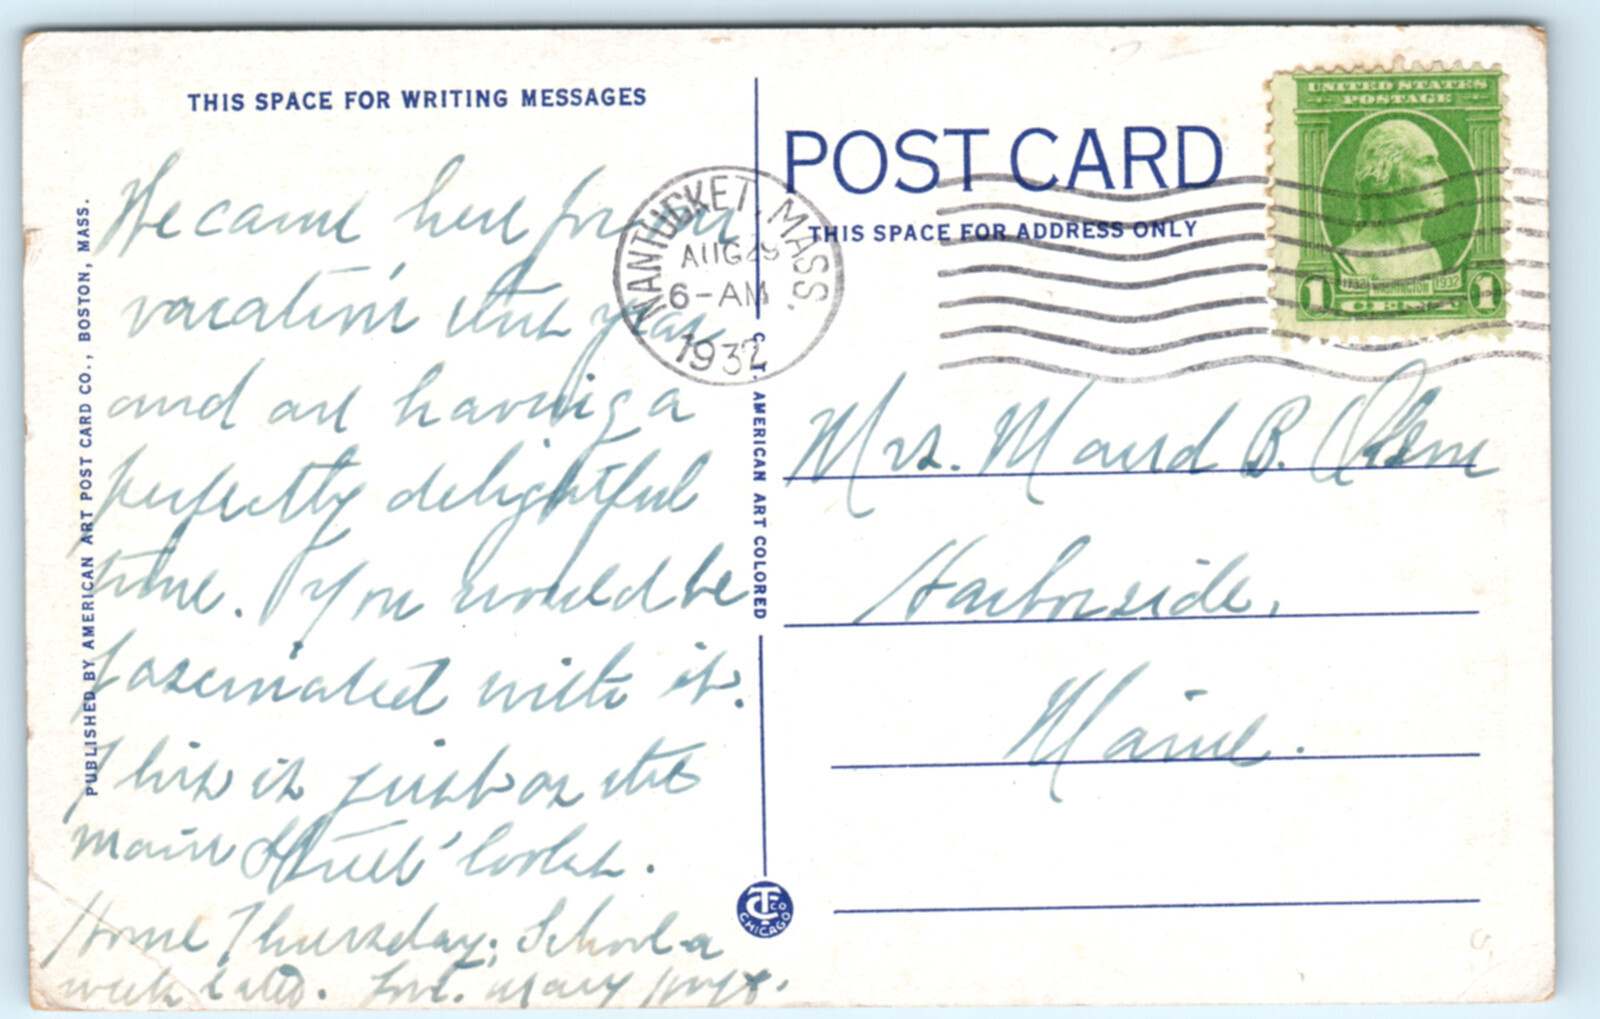 THIS SPACE FOR WRITING MESSAGES
We came here for our
vacation this year
and are having a
perfectly delightful
time. You would be
fascinated with it.
This is just as the
main Street looks.
Home Thursday, School a
week later. Love. Mary
PUBLISHED BY AMERICAN ART POST CARD CO., BOSTON, MASS.
C. T. AMERICAN ART COLORED
CT CO CHICAGO
NANTUCKET, MASS.
AUG 29
6-AM
1932
POST CARD
THIS SPACE FOR ADDRESS ONLY
UNITED STATES
POSTAGE
1732 WASHINGTON 1932
1 CENT 1
Mrs. Maud B.
Harborside,
Maine.